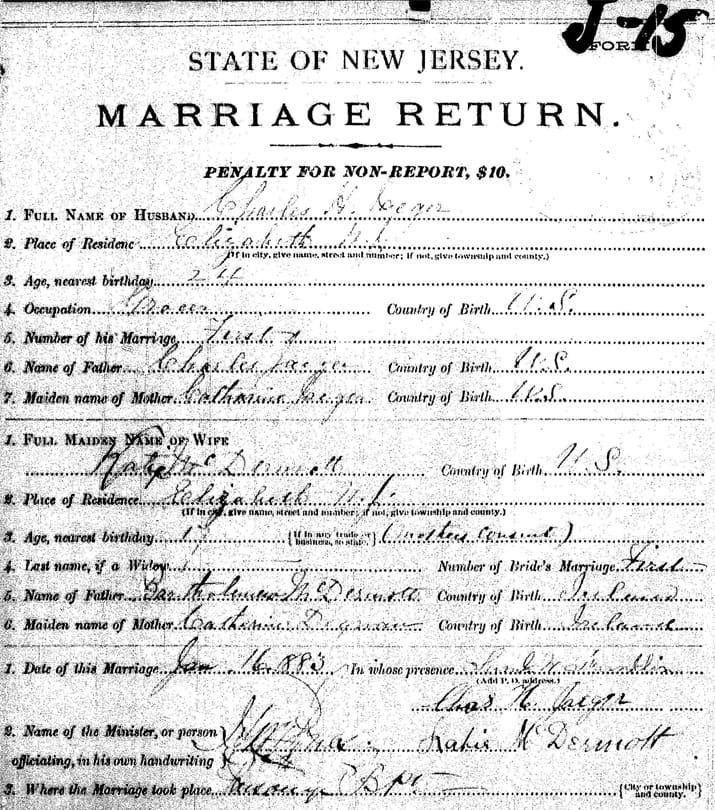 J-15
FORM
STATE OF NEW JERSEY.
MARRIAGE RETURN.
PENALTY FOR NON-REPORT, $10.
1. FULL NAME OF HUSBAND Charles H. Jaeger
2. Place of Residence Elizabeth N.J.
(If in city, give name, street and number; if not, give township and county.)
3. Age, nearest birthday 24
4. Occupation Grocer Country of Birth U.S.
5. Number of his Marriage First
6. Name of Father Charles Jaeger Country of Birth U.S.
7. Maiden name of Mother Catharine Jaeger Country of Birth U.S.
1. FULL MAIDEN NAME OF WIFE
Katie McDermott Country of Birth U.S.
2. Place of Residence Elizabeth N.J.
(If in city, give name, street and number; if not, give township and county.)
3. Age, nearest birthday {If in any trade or business, so state.} (mothers consent)
4. Last name, if a Widow Number of Bride's Marriage First
5. Name of Father Bartholomew McDermott Country of Birth Ireland
6. Maiden name of Mother Catharine Country of Birth Ireland
1. Date of this Marriage Jan 16. 1883 In whose presence
(Add P. O. address.)
Chas H. Jaeger
2. Name of the Minister, or person Katie McDermott
officiating, in his own handwriting
3. Where the Marriage took place {City or township and county.}